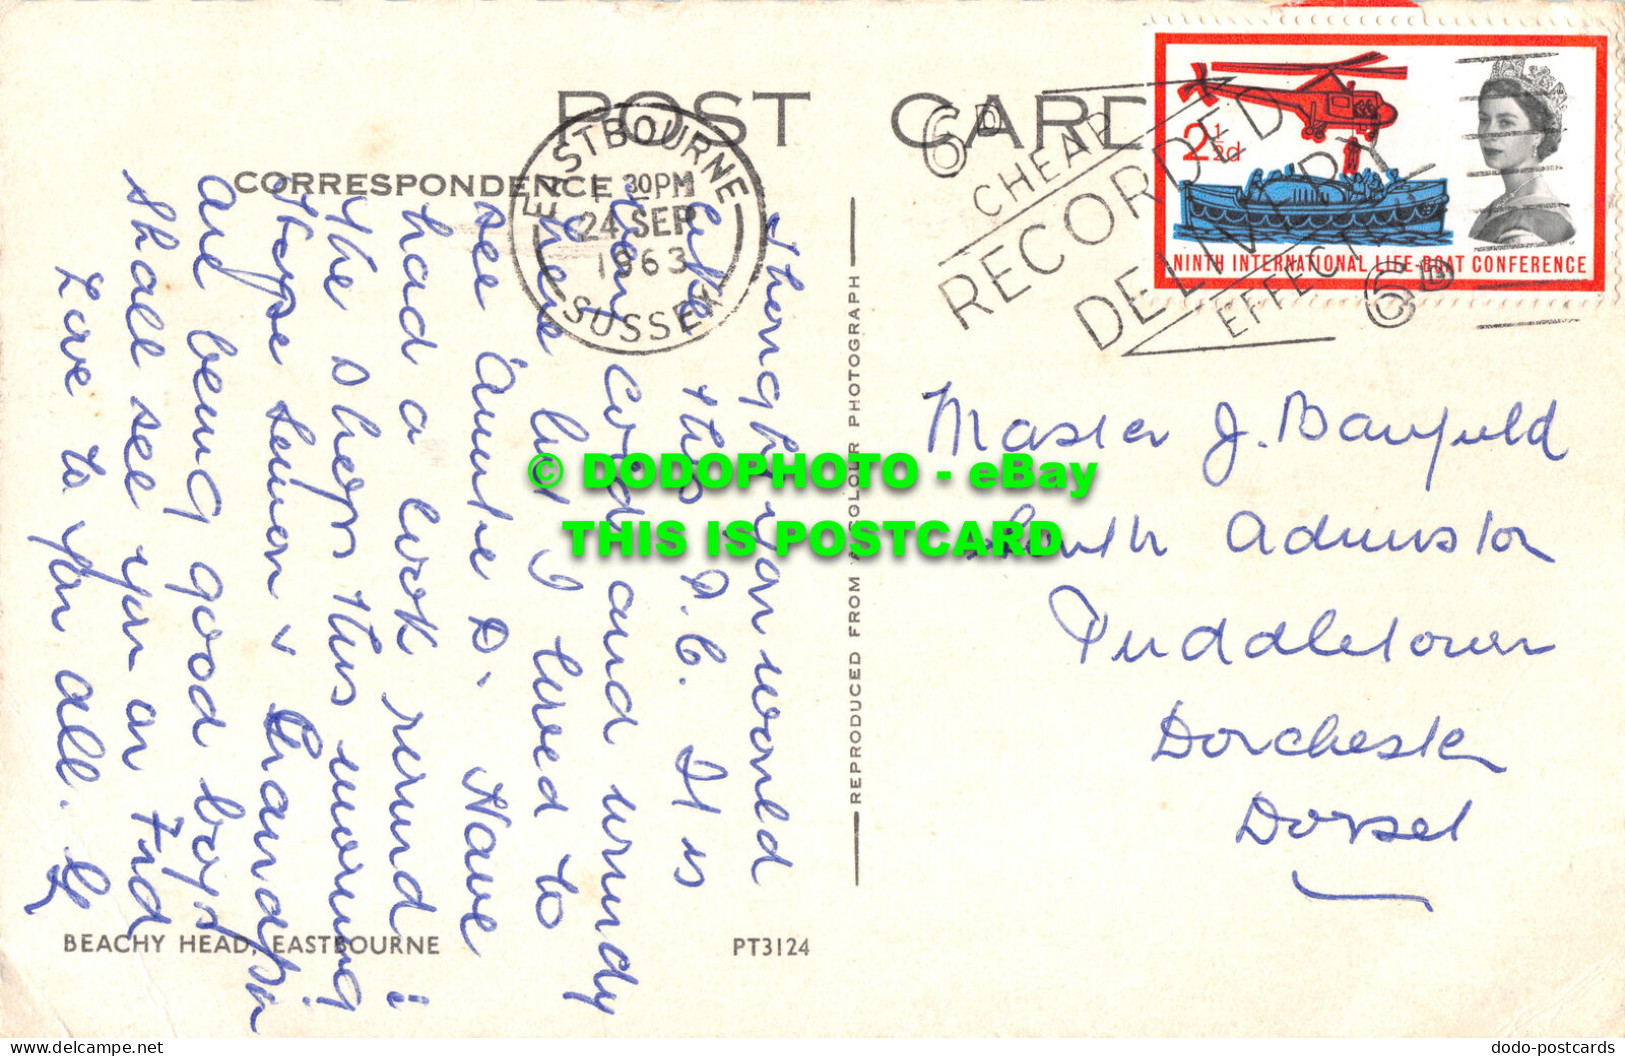 POST CARD
CORRESPONDENCE
EASTBOURNE
1 30PM
24 SEP
1963
SUSSEX
6D
CHEAP
RECORDED
DELIVERY
EFFECTIVE
6D
2½d
NINTH INTERNATIONAL LIFE-BOAT CONFERENCE
Thought you would
like this P.C. It is
very cold and windy
here but I lived to
see Aunte D. Have
had a look round
the shops this morning
Hope Simon & Grandpa
are being good boys
shall see you on Frid
Love to you all. G
REPRODUCED FROM A COLOUR PHOTOGRAPH
Master J. Banfield
South Admiston
Puddletown
Dorchester
Dorset
© DODOPHOTO - eBay
THIS IS POSTCARD
BEACHY HEAD, EASTBOURNE
PT3124
delcampe.net
dodo-postcards